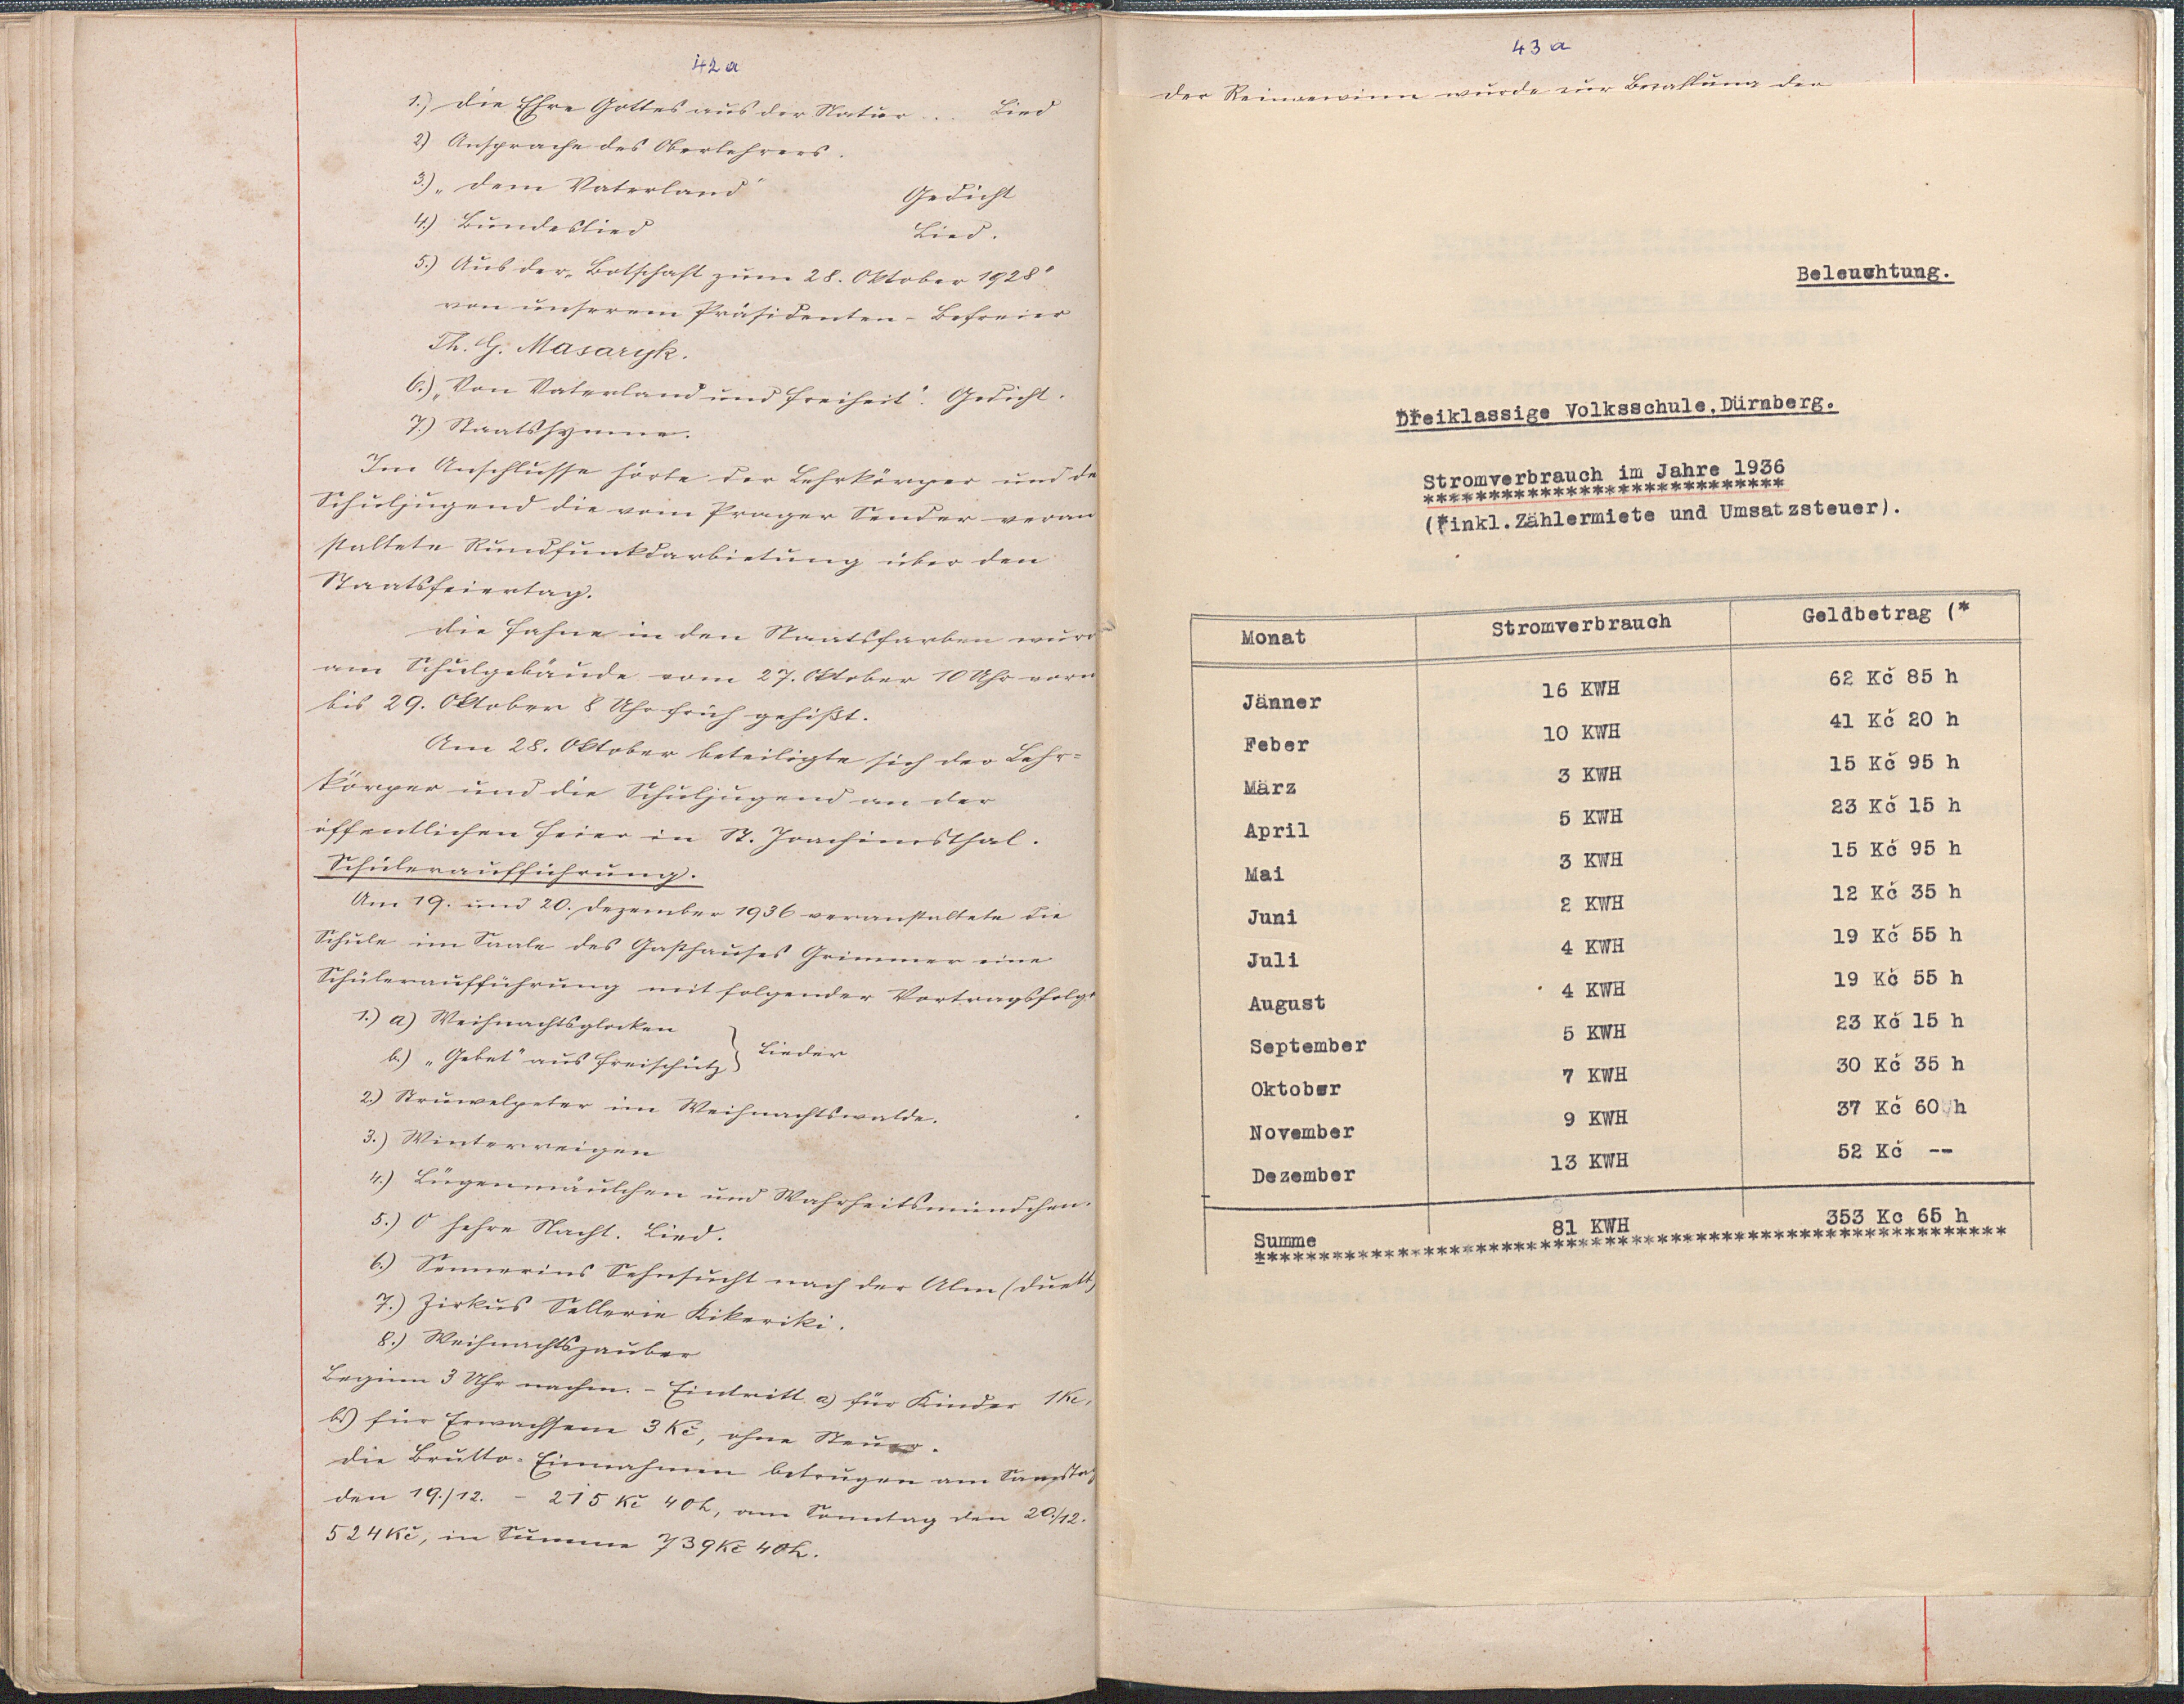 42a
1.) Die Ehre Gottes aus der Natur ... Lied
2) Ansprache des Oberlehrers.
3.) „Dem Vaterland" Gedicht
4.) Bundeslied Lied.
5.) Aus der „Botschaft zum 28. Oktober 1928"
von unserem Präsidenten-Befreier
Th. G. Masaryk.
6.) „Von Vaterland und Freiheit". Gedicht.
7.) Staatshymne.
Im Anschlusse hörte der Lehrkörper und de
Schuljugend die vom Prager Sender veran
staltete Rundfunkdarbietung über den
Staatsfeiertag.
Die Fahne in den Staatsfarben wurd
am Schulgebäude vom 27. Oktober 10 Uhr vorm
bis 29. Oktober 8 Uhr früh gehißt.
Am 28. Oktober beteiligte sich der Lehr=
körper und die Schuljugend an der
öffentlichen Feier in St. Joachimsthal.
Schüleraufführung.
Am 19. und 20. Dezember 1936 veranstaltete die
Schule im Saale des Gasthauses Grimmer eine
Schüleraufführung mit folgender Vortragsfolge
1.) a) Weihnachtsglocken
b.) „Gebet" aus Freischütz } Lieder
2.) Struwelpeter im Weihnachtswalde.
3.) Winterreigen
4.) Lügenmäulchen und Wahrheitsmündchen.
5.) O hehre Nacht. Lied.
6.) Sennerins Sehnsucht nach der Alm (Duett)
7.) Zirkus Sellerie Kikeriki.
8.) Weihnachtszauber
Beginn 3 Uhr nachm. - Eintritt a) für Kinder 1Kč,
b) für Erwachsene 3 Kč, ohne Steuer.
Die Brutto-Einnahmen betrugen am Samstag
den 19./12. - 215 Kč 40h, am Sonntag den 20./12.
524Kč, in Summe 739Kč 40h.
43a
Der Reingewinn wurde zur Bezahlung der
Beleuchtung.
Dreiklassige Volksschule, Dürnberg.
Stromverbrauch im Jahre 1936
****************************
(*inkl. Zählermiete und Umsatzsteuer).
Monat Stromverbrauch Geldbetrag (*
Jänner 16 KWH 62 Kč 85 h
Feber 10 KWH 41 Kč 20 h
März 3 KWH 15 Kč 95 h
April 5 KWH 23 Kč 15 h
Mai 3 KWH 15 Kč 95 h
Juni 2 KWH 12 Kč 35 h
Juli 4 KWH 19 Kč 55 h
August 4 KWH 19 Kč 55 h
September 5 KWH 23 Kč 15 h
Oktober 7 KWH 30 Kč 35 h
November 9 KWH 37 Kč 60 h
Dezember 13 KWH 52 Kč --
Summe 81 KWH 353 Kc 65 h
**********************************************************